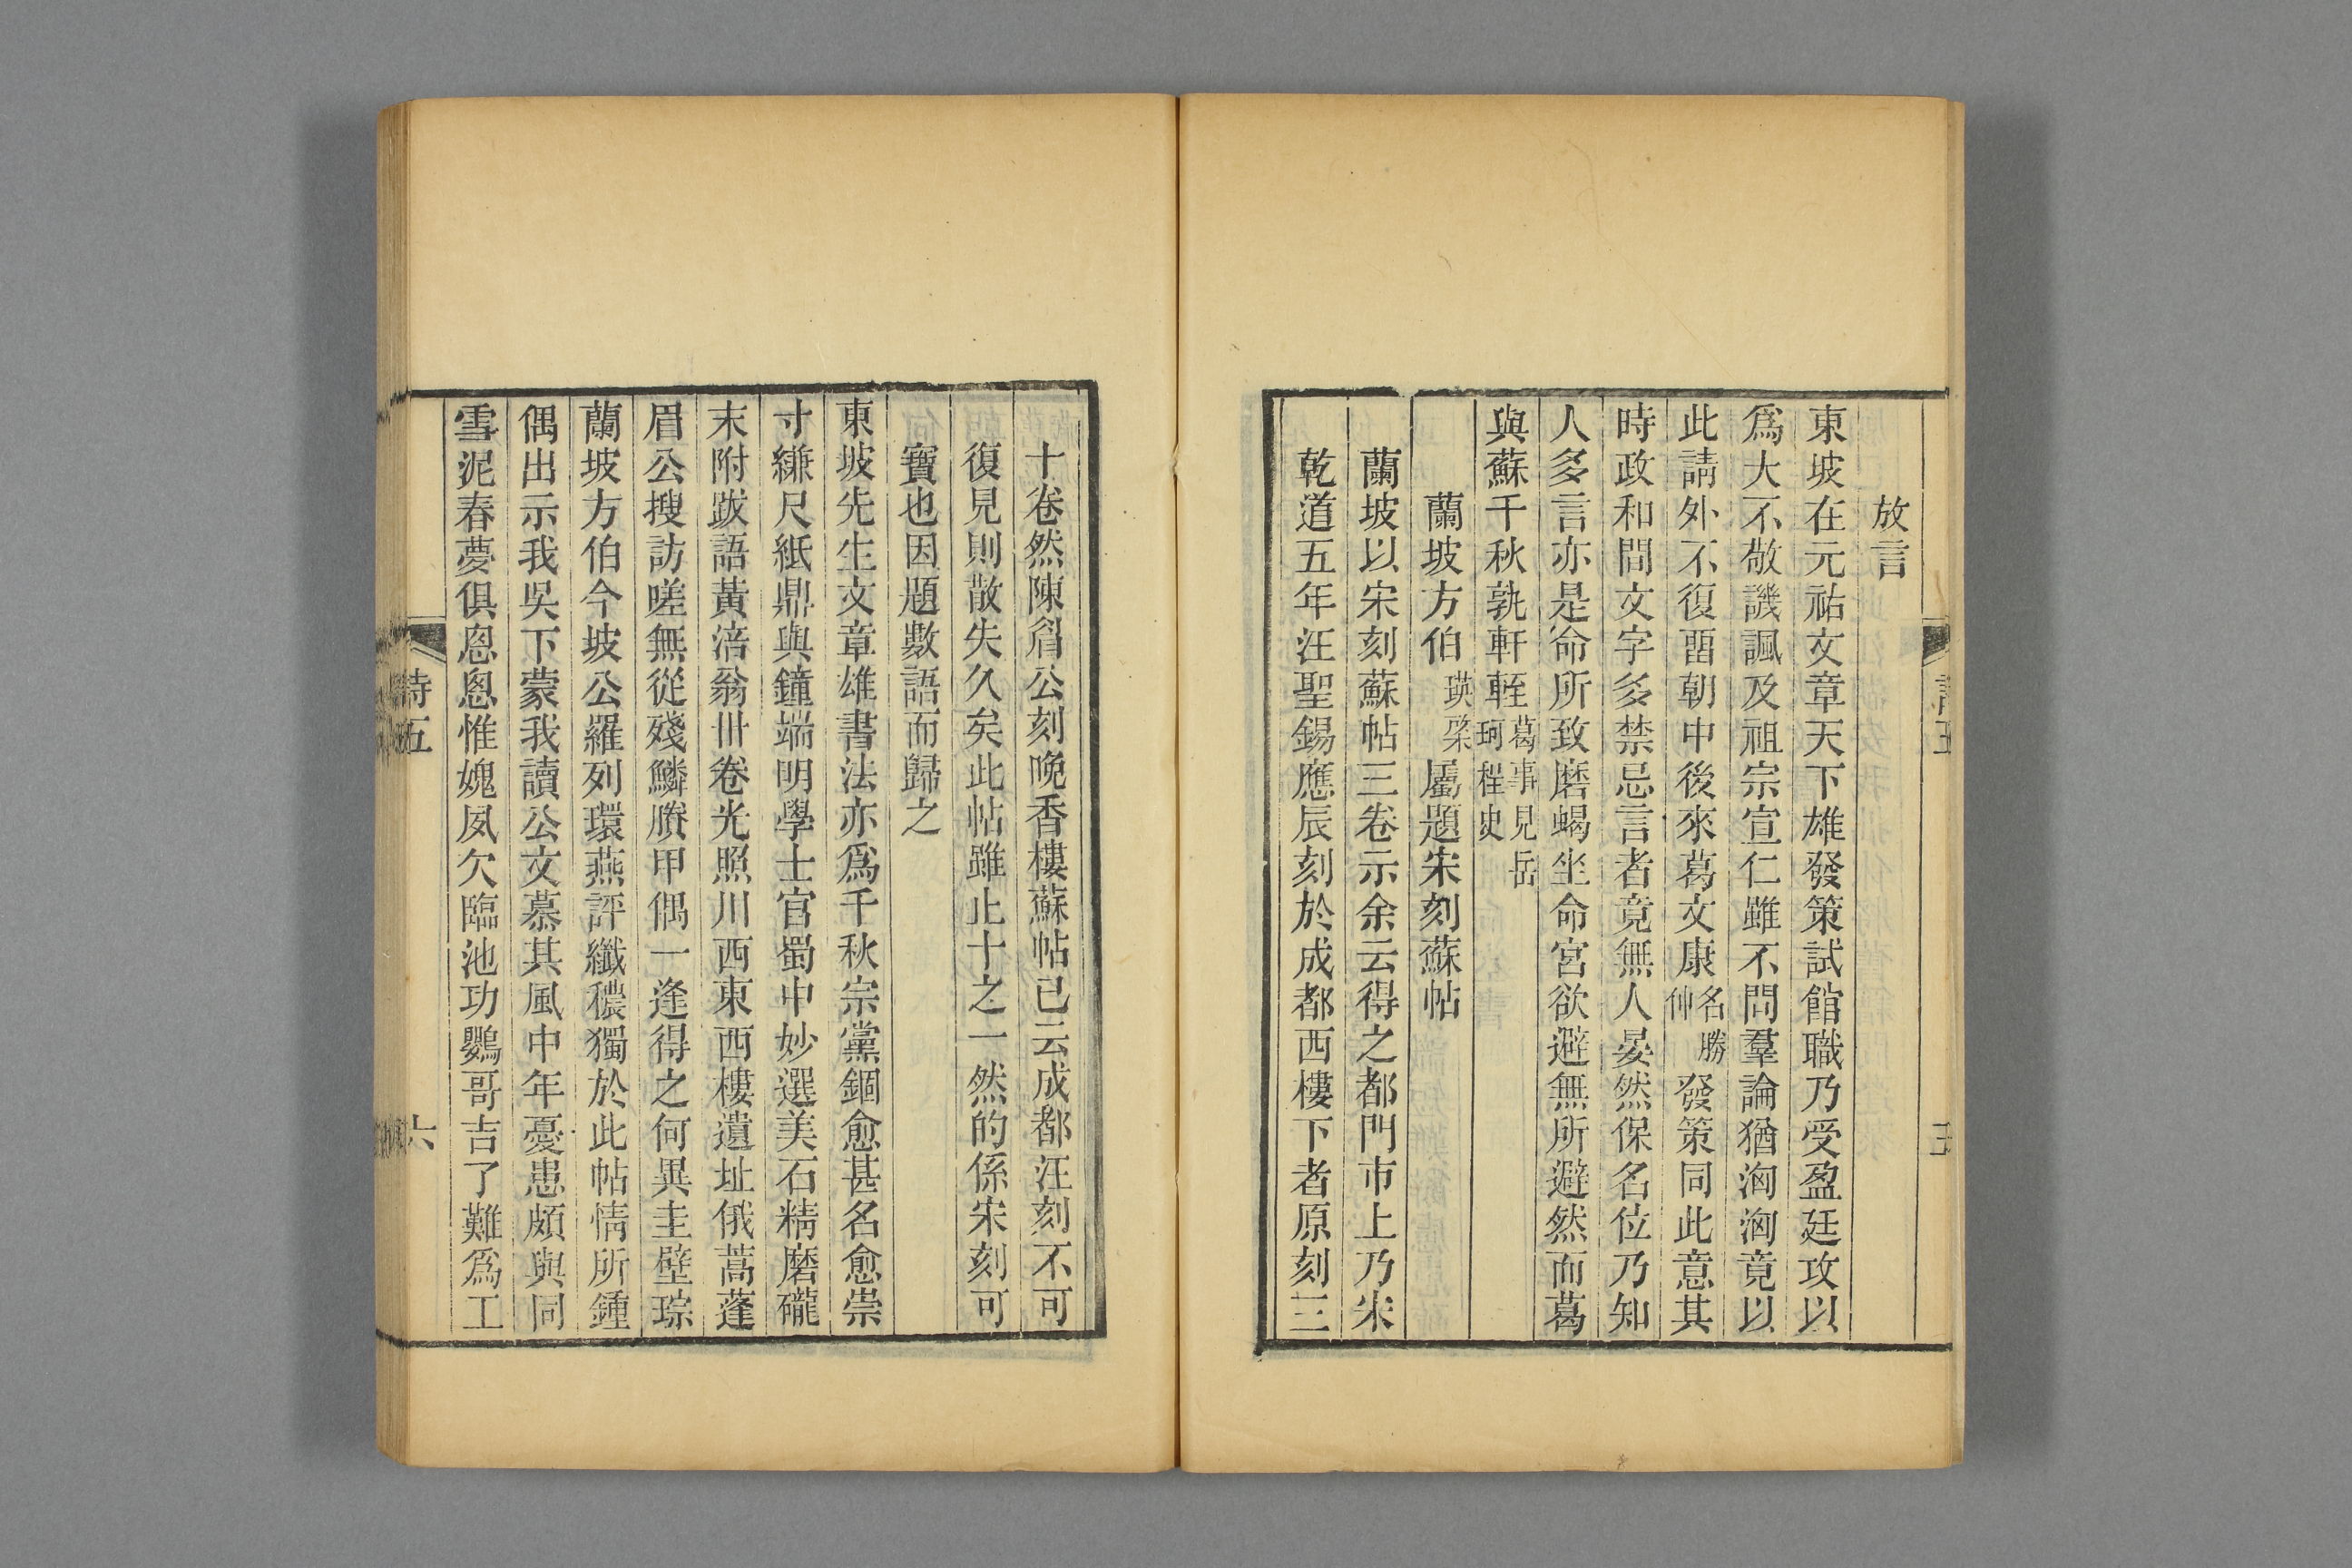 放言
東坡在元祐文章天下雄發策試館職乃受盈廷攻以
爲大不敬譏諷及祖宗宣仁雖不問羣論猶洶洶竟以
此請外不復畱朝中後來葛文康名勝仲發策同此意其
時政和間文字多禁忌言者竟無人晏然保名位乃知
人多言亦是命所致磨蝎坐命宮欲避無所避然而葛
與蘇千秋孰軒輊葛事見岳珂桯史
蘭坡方伯瑛棨屬題宋刻蘇帖
蘭坡以宋刻蘇帖三卷示余云得之都門市上乃宋
乾道五年汪聖錫應辰刻於成都西樓下者原刻三
十卷然陳眉公刻晚香樓蘇帖已云成都汪刻不可
復見則散失久矣此帖雖止十之一然的係宋刻可
寶也因題數語而歸之
東坡先生文章雄書法亦爲千秋宗黨錮愈甚名愈崇
寸縑尺紙鼎與鐘端明學士官蜀中妙選美石精磨礲
末附跋語黃涪翁卅卷光照川西東西樓遺址俄蒿蓬
眉公搜訪嗟無從殘鱗賸甲偶一逢得之何異圭璧琮
蘭坡方伯今坡公羅列環燕評纖穠獨於此帖情所鍾
偶出示我吳下蒙我讀公文慕其風中年憂患頗與同
雪泥春夢俱悤悤惟媿夙欠臨池功鸚哥吉了難爲工
詩五
六